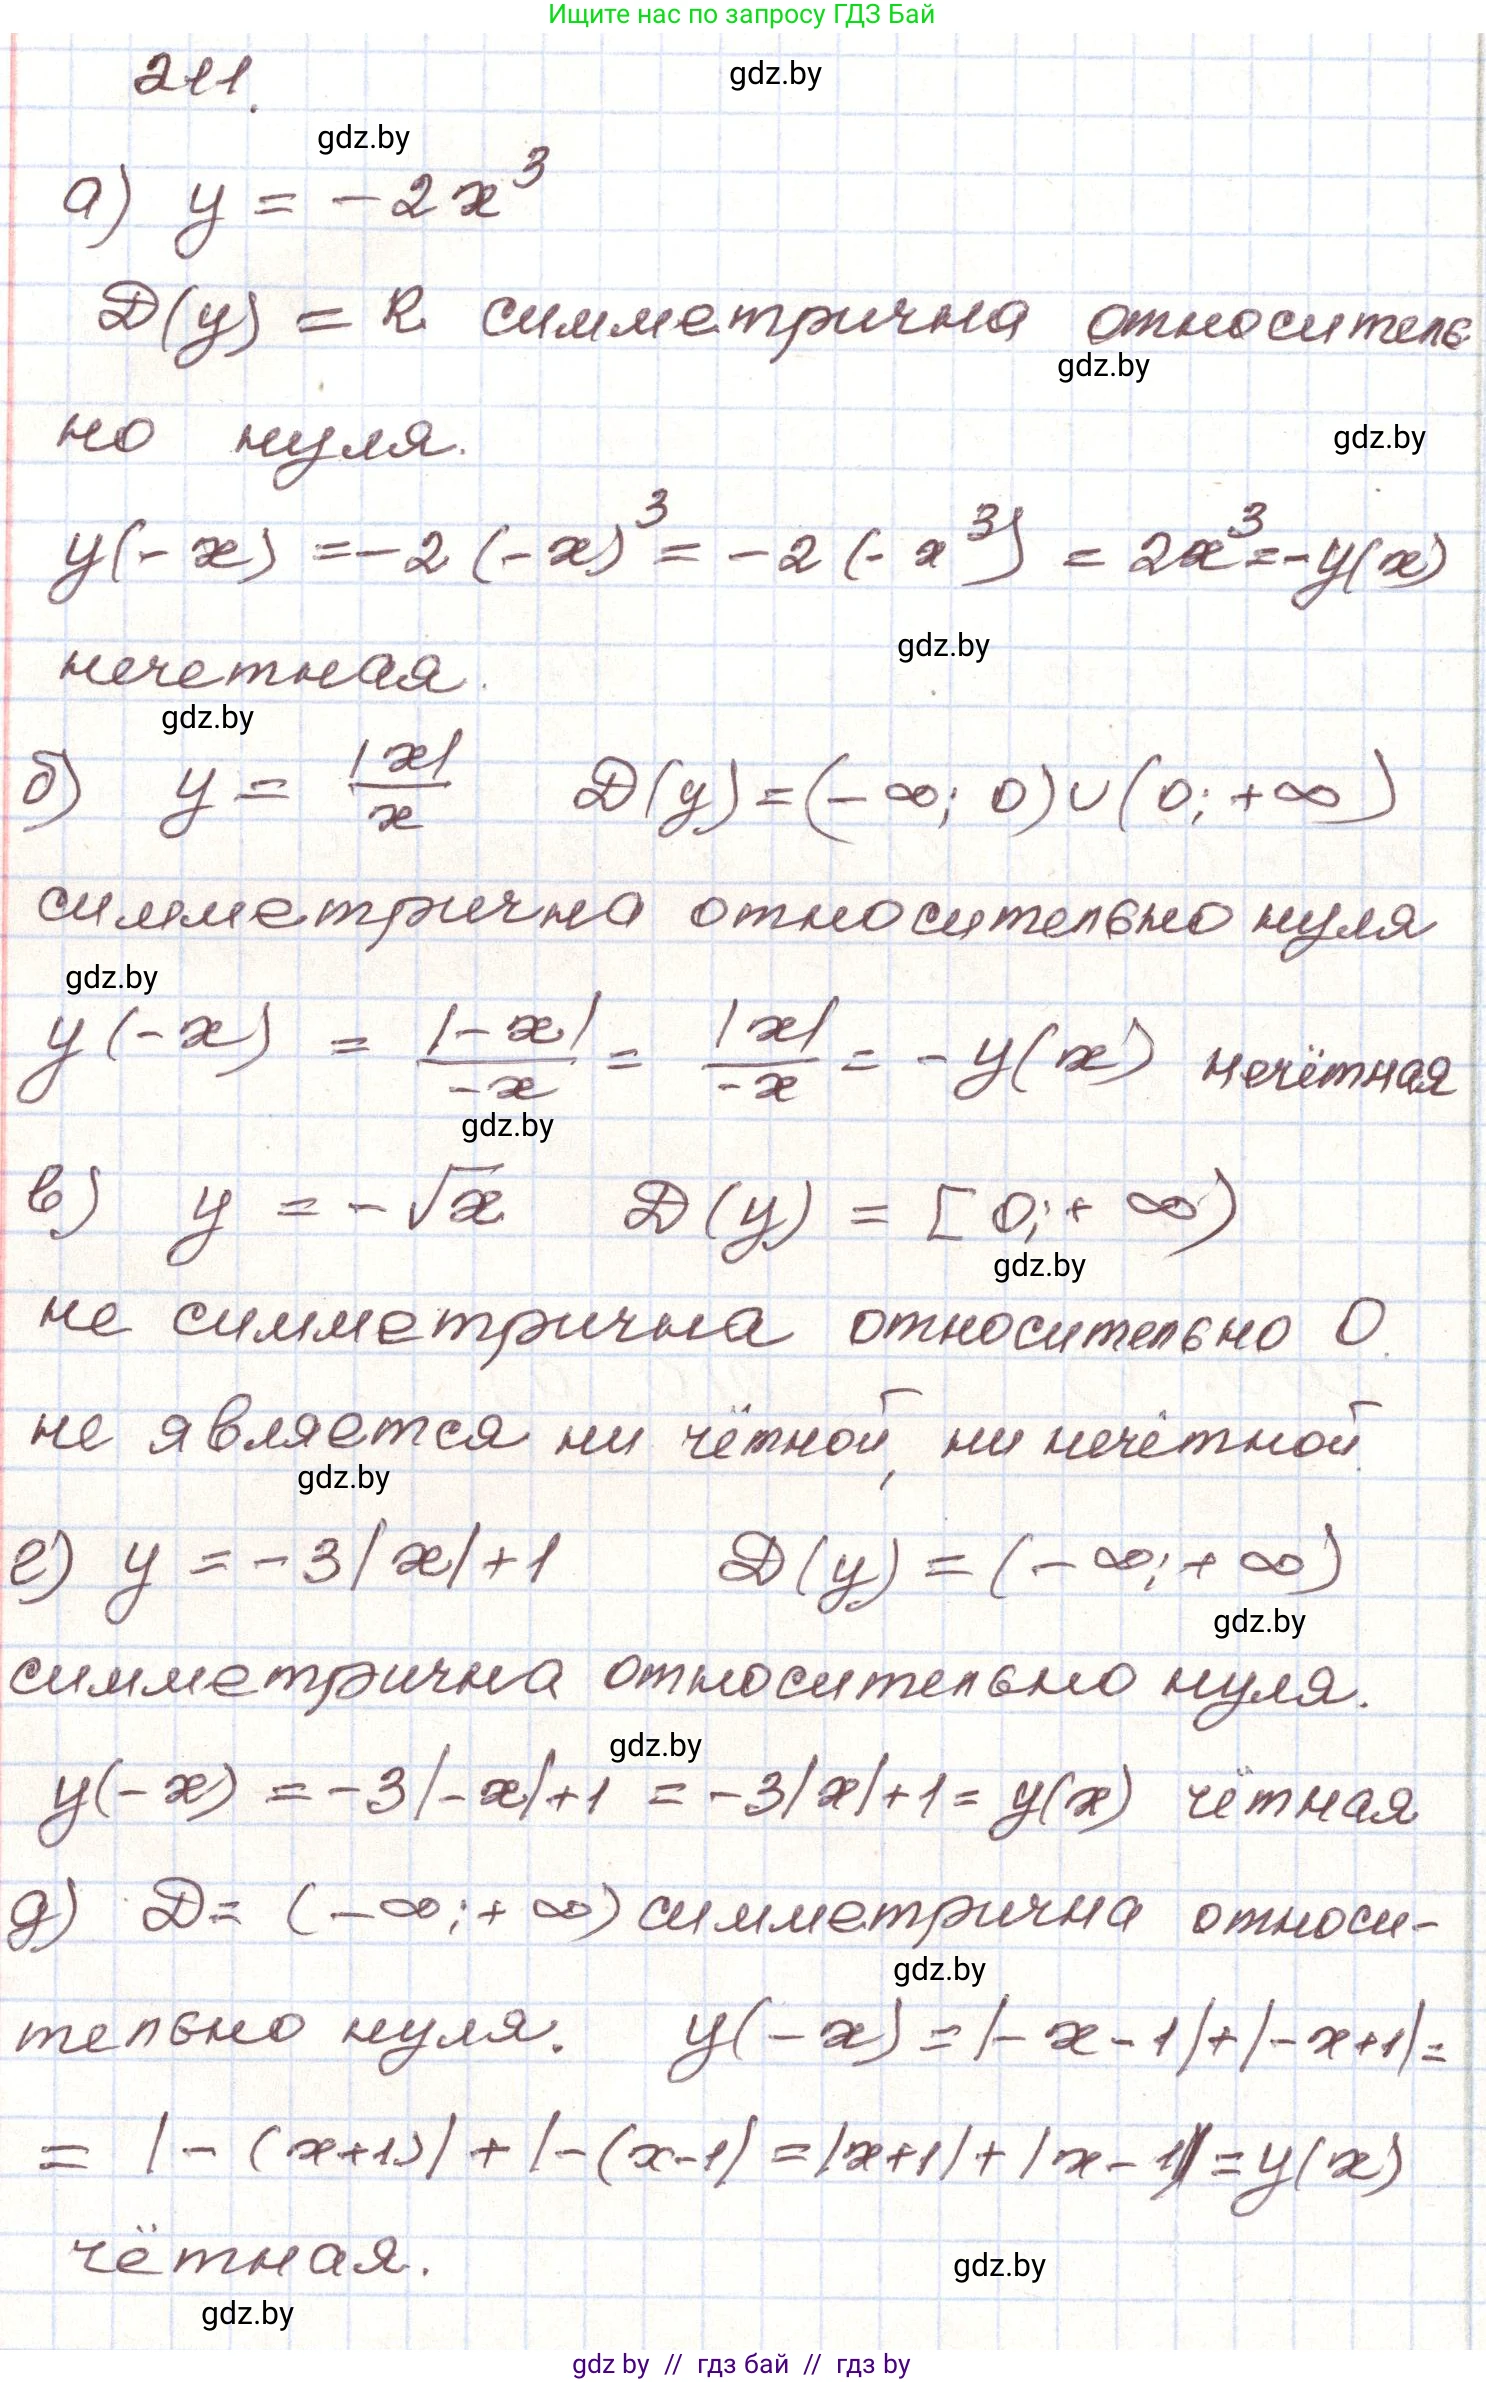 Ищите нас по запросу ГДЗ Бай
211.
gdz.by
gdz.by
а) y = -2x³
D(y) = R симметрична относитель
gdz.by
но нуля.
gdz.by
y(-x) = -2(-x)³ = -2(-x³) = 2x³ = -y(x)
gdz.by
нечетная.
gdz.by
б) y = |x|/x D(y) = (-∞; 0)∪(0; +∞)
симметрична относительно нуля
gdz.by
y(-x) = |-x|/-x = |x|/-x = -y(x) нечётная
gdz.by
в) y = -√x D(y) = [0; +∞)
gdz.by
не симметрична относительно 0.
не является ни чётной, ни нечётной.
gdz.by
г) y = -3|x|+1 D(y) = (-∞; +∞)
gdz.by
симметрична относительно нуля.
gdz.by
y(-x) = -3|-x|+1 = -3|x|+1 = y(x) чётная
д) D = (-∞; +∞) симметрична относи-
gdz.by
тельно нуля. y(-x) = |-x-1|+|-x+1| =
= |-(x+1)| + |-(x-1| = |x+1| + |x-1| = y(x)
чётная.
gdz.by
gdz.by
gdz by // гдз бай // гдз by